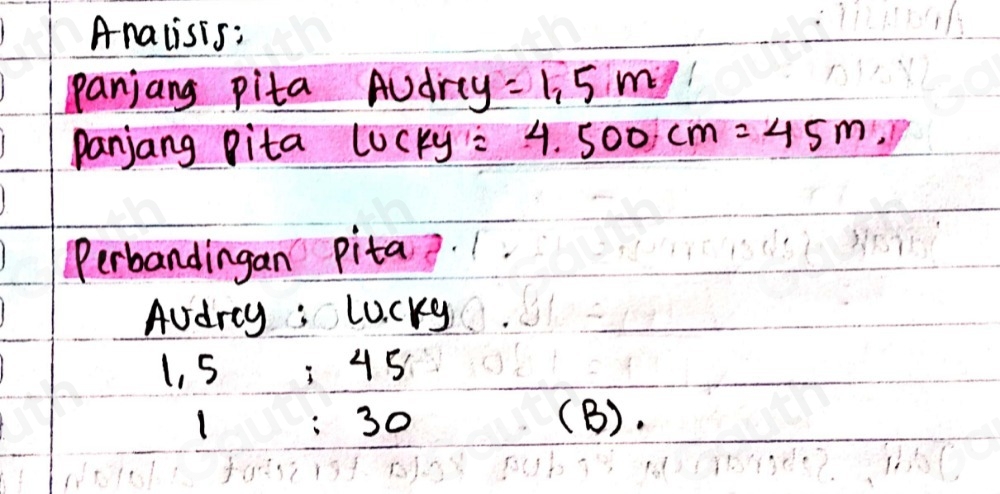 Analisis:
Panjang pita Audrey = 1,5 m
Panjang pita Lucky = 4.500 cm = 45 m.
Perbandingan pita
Audrey : Lucky
1,5 : 45
1 : 30 (B).